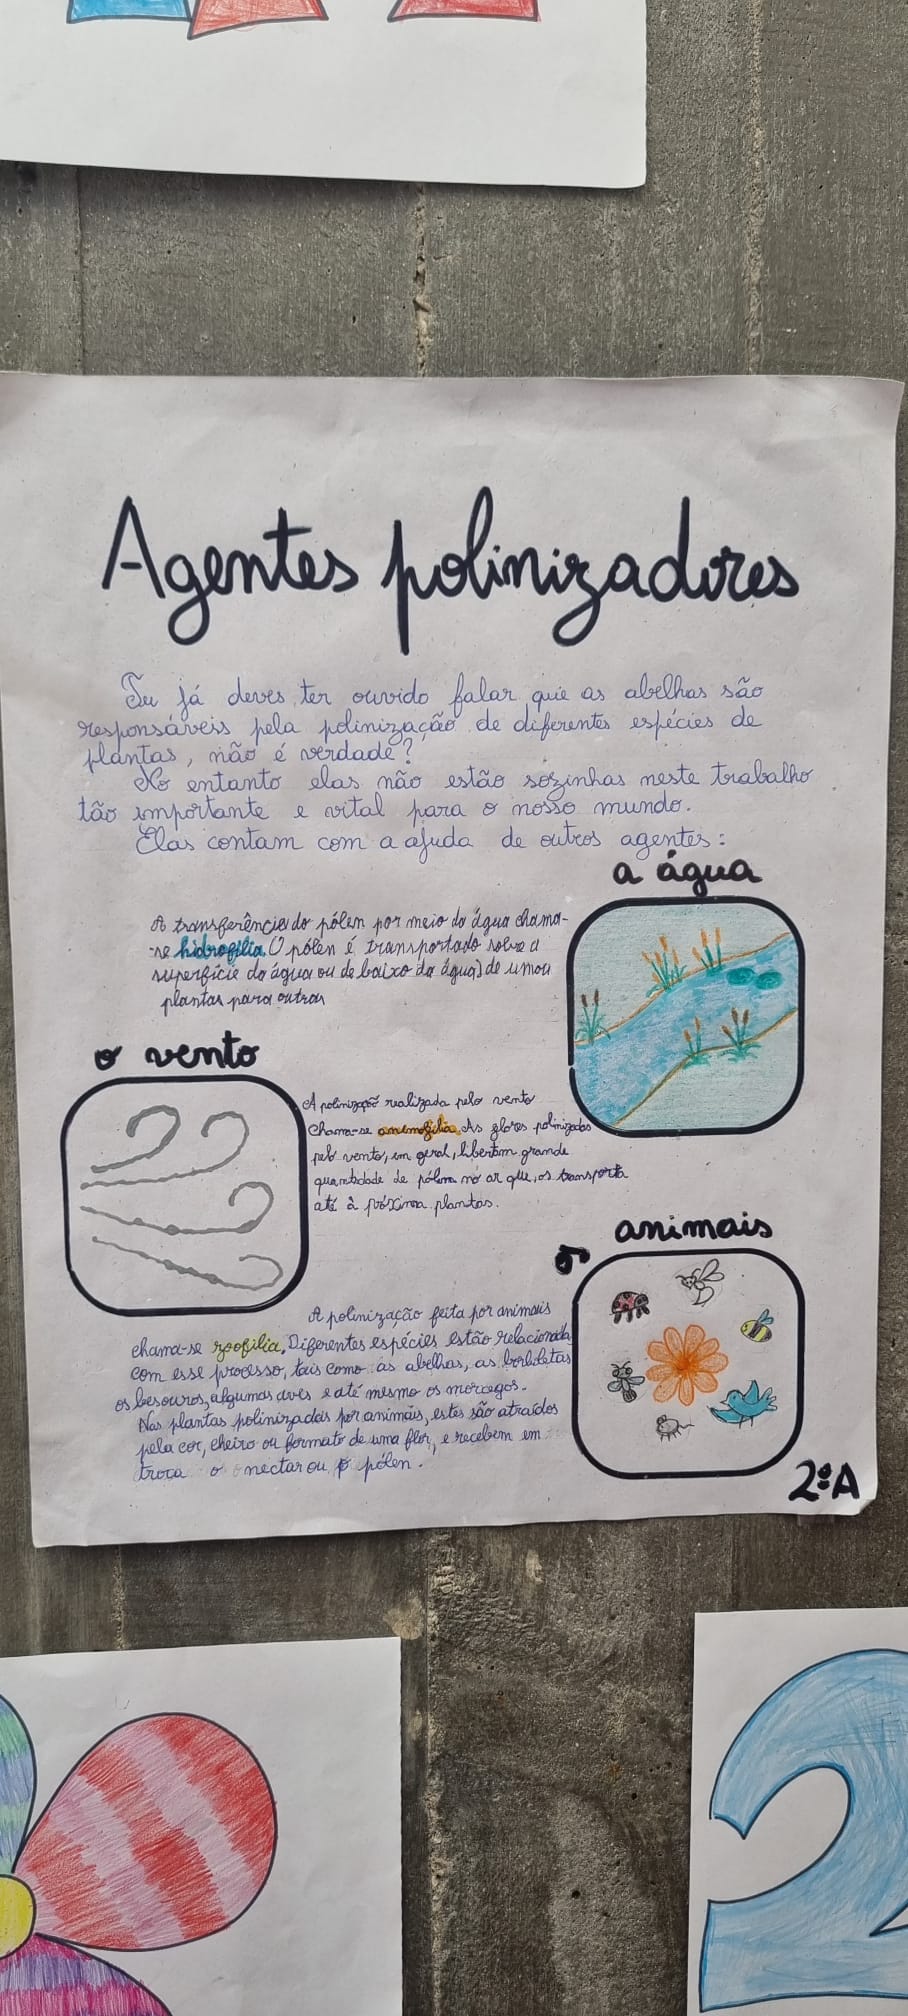 Agentes polinizadores
Tu já deves ter ouvido falar que as abelhas são
responsáveis pela polinização de diferentes espécies de
plantas, não é verdade?
No entanto elas não estão sozinhas neste trabalho
tão importante e vital para o nosso mundo.
Elas contam com a ajuda de outros agentes:
a água
A transferência do pólen por meio da água chama-
-se hidrofilia. O pólen é transportado sobre a
superfície da água ou de baixo da água, de uma
plantas para outras
o vento
A polinização realizada pelo vento
chama-se anemofilia. As flores polinizadas
pelo vento, em geral, libertam grande
quantidade de pólen no ar que, os transporta
até à próxima plantas.
os animais
A polinização feita por animais
chama-se zoofilia. Diferentes espécies estão relacionada
com esse processo, tais como as abelhas, as borboletas
os besouros, algumas aves e até mesmo os morcegos.
Nas plantas polinizadas por animais, estes são atraídos
pela cor, cheiro ou formato de uma flor, e recebem em
troca o nectar ou o pólen.
2ºA
2